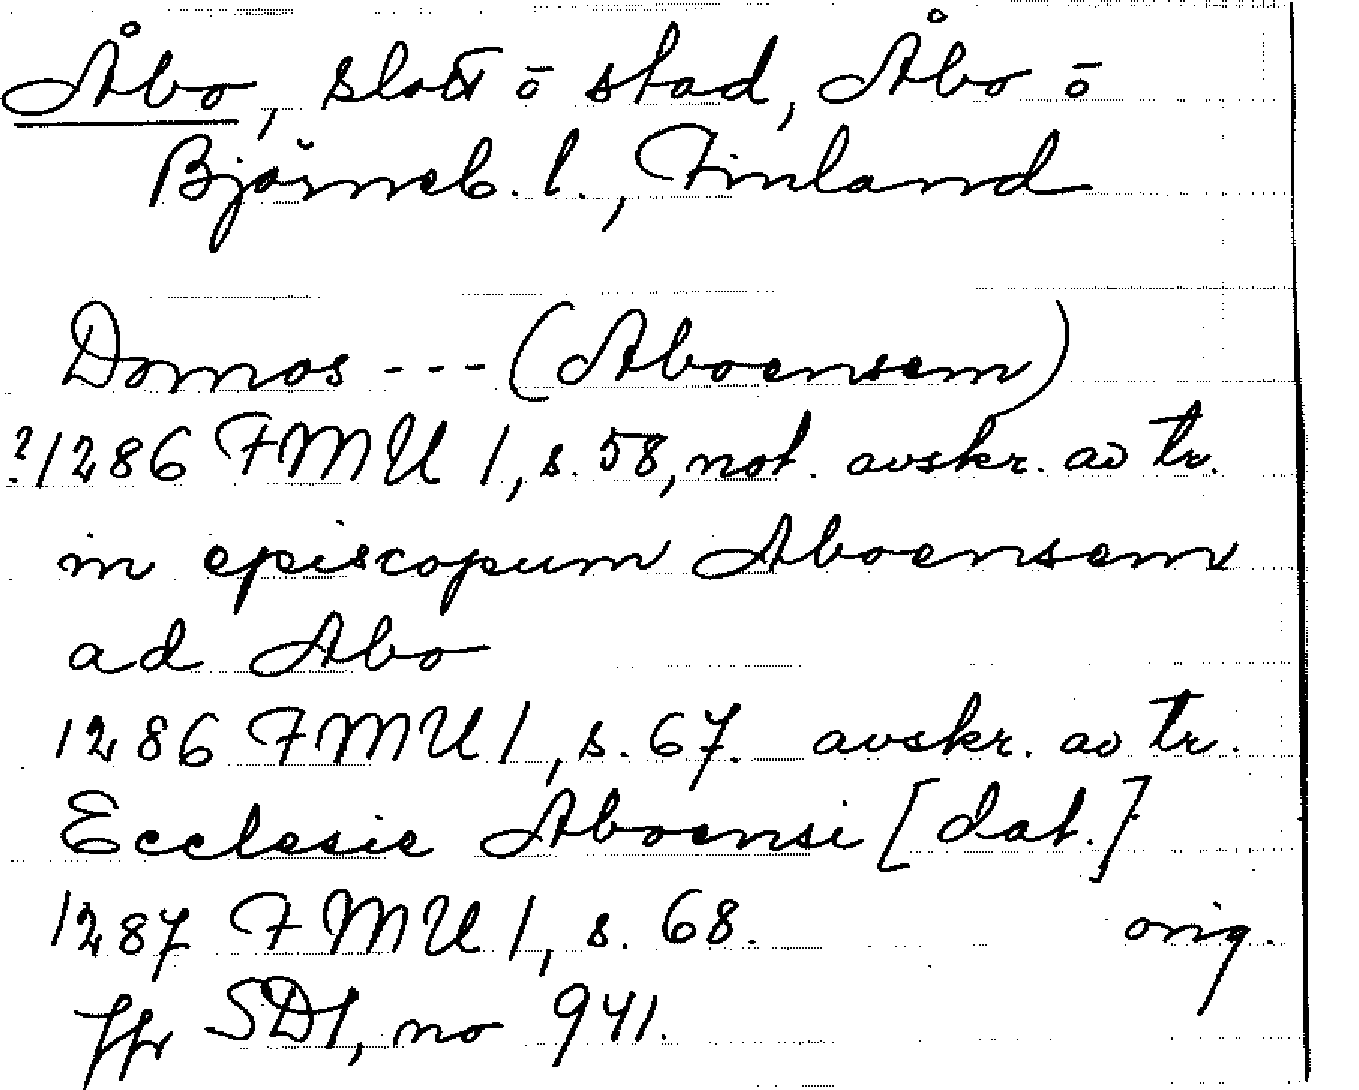 Åbo, slott ō stad, Åbo ō
Björneb. l., Finland
Domos --- (Aboensem)
?1286 FMU 1, s. 58, not. avskr. av tr.
in episcopum Aboensem
ad Abo
1286 FMU 1, s. 67. avskr. av tr.
Ecclesie Aboensi [dat.]
1287 FMU 1, s. 68. orig.
jfr SD1, no 941.